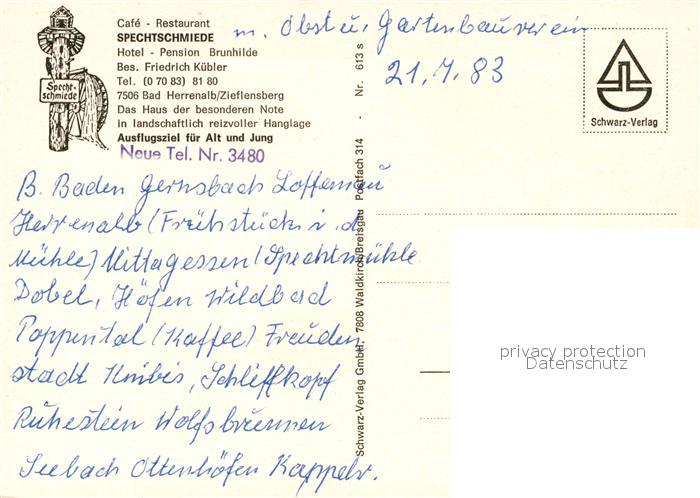 Café - Restaurant
SPECHTSCHMIEDE
Hotel - Pension Brunhilde
Bes. Friedrich Kübler
Tel. (0 70 83) 81 80
7506 Bad Herrenalb/Zieflensberg
Das Haus der besonderen Note
in landschaftlich reizvoller Hanglage
Ausflugsziel für Alt und Jung
Neue Tel. Nr. 3480
Specht-
schmiede
m. Obst u. Gartenbauverein
21.4.83
Schwarz-Verlag
B. Baden Gernsbach Loffenau
Herrenalb (Frühstück i. d.
Mühle) Mittagessen (Spechtmühle
Dobel, Höfen Wildbad
Poppental (Kaffee) Freuden
stadt Knibis, Schliffkopf
Ruhestein Wolfsbrunnen
Seebach Ottenhöfen Kappelr.
Schwarz-Verlag GmbH, 7808 Waldkirch/Breisgau Postfach 314 - Nr. 613 s
privacy protection
Datenschutz